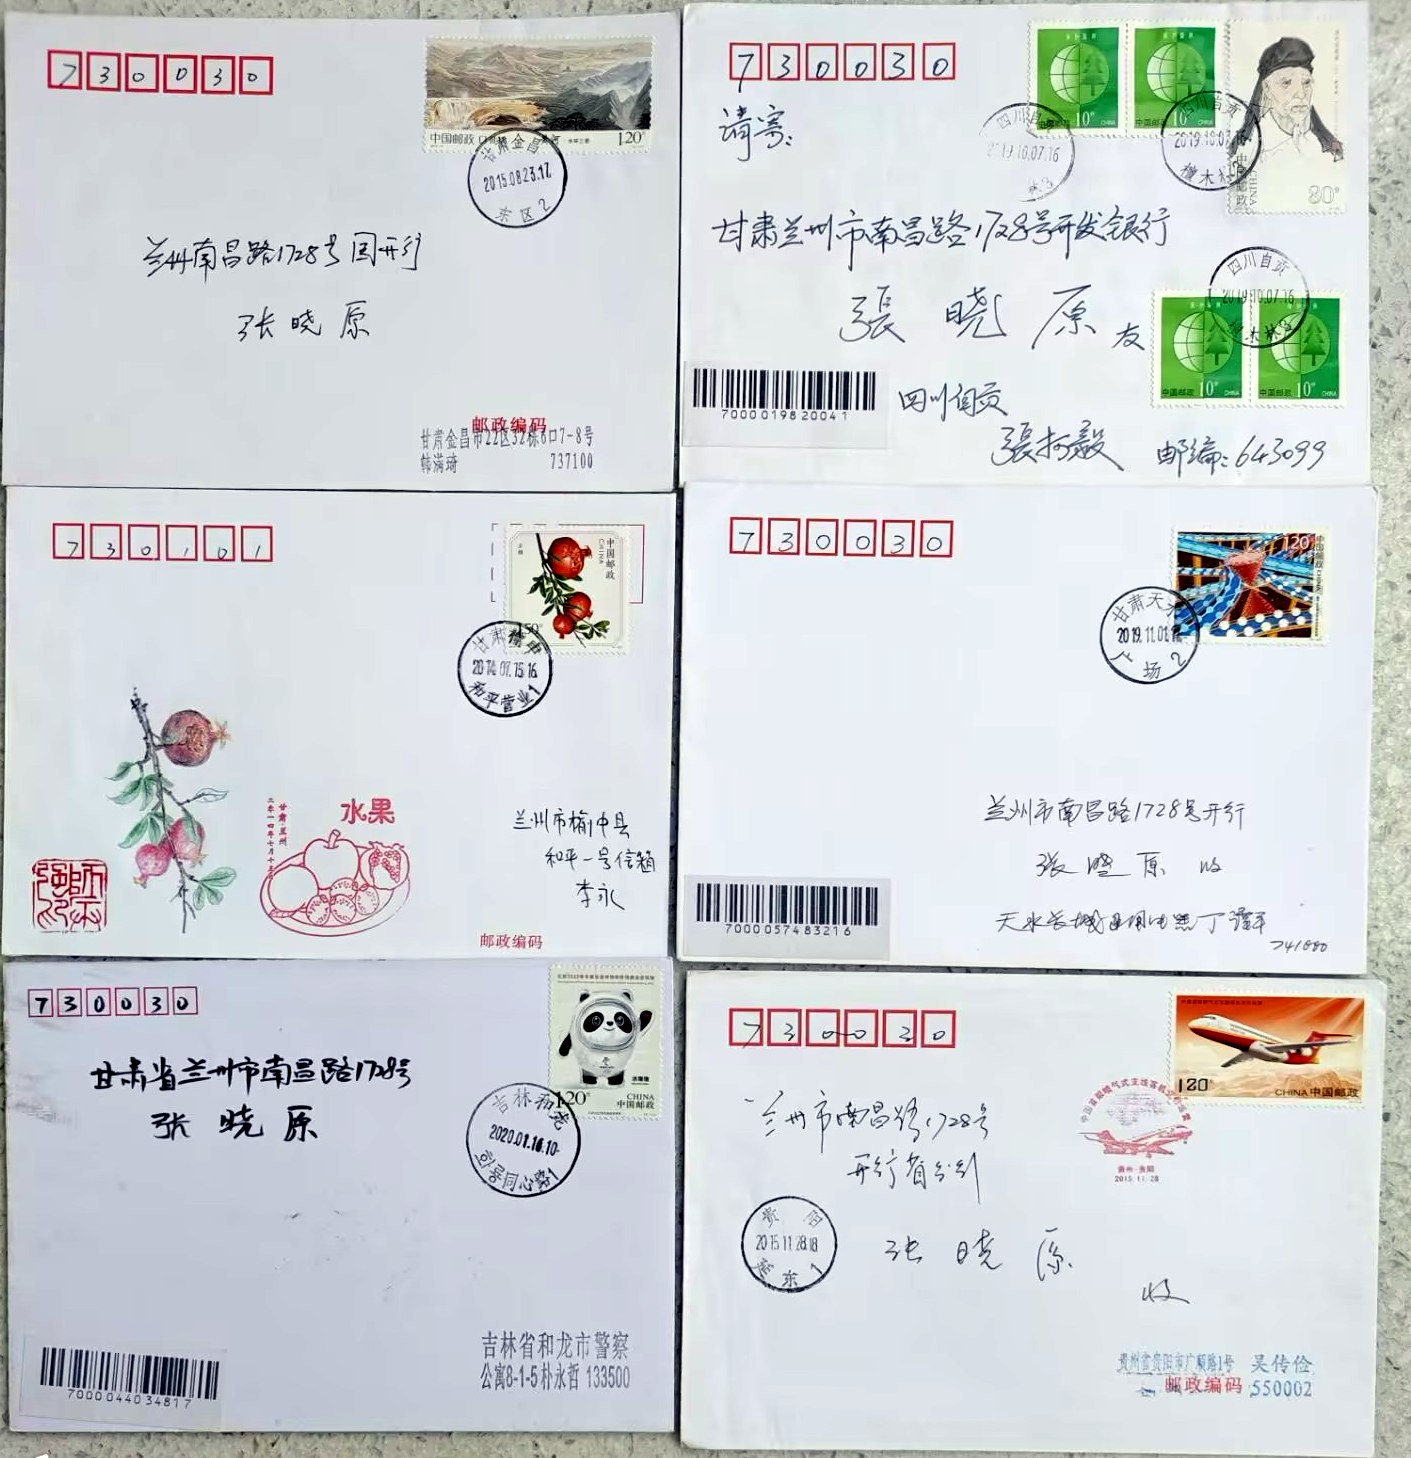 730030
中国邮政
1.20元
甘肃金昌
2015.08.23.17
东区2
兰州南昌路1728号国开行
张晓原
邮政编码
甘肃金昌市22区32栋6口7-8号
韩满琦 737100
730030
请寄:
中国邮政 10分 CHINA
中国邮政 10分 CHINA
中国邮政 CHINA
80分
四川自贡
2019.10.07.16
四川自贡
2019.10.07.16
檀木林3
甘肃兰州市南昌路1728号开发银行
張晓原友
四川自贡
2019.10.07.16
檀木林3
中国邮政 10分 CHINA
中国邮政 10分 CHINA
7000019820041
四川自贡
邮编:643099
730101
中国邮政
CHINA
1.50元
甘肃榆中
2014.07.15.16
和平营业1
水果
甘肃·兰州
兰州市榆中县
和平一号信箱
李永
邮政编码
730030
1.20
中国邮政
甘肃天水
2019.11.01
广场2
兰州市南昌路1728号开行
张晓原收
7000057483216
741000
730030
1.20元
CHINA
中国邮政
吉林和龙
2020.01.16.10
화룡同心路1
甘肃省兰州市南昌路1728号
张晓原
吉林省和龙市警察
公寓8-1-5朴永哲 133500
7000044034817
730030
1.20元
CHINA中国邮政
贵州·贵阳
2015.11.28
兰州市南昌路1728号
开行省分行
张晓原
收
贵阳
2015.11.28.18
延东1
贵州省贵阳市广顺路1号 吴传俭
邮政编码 550002